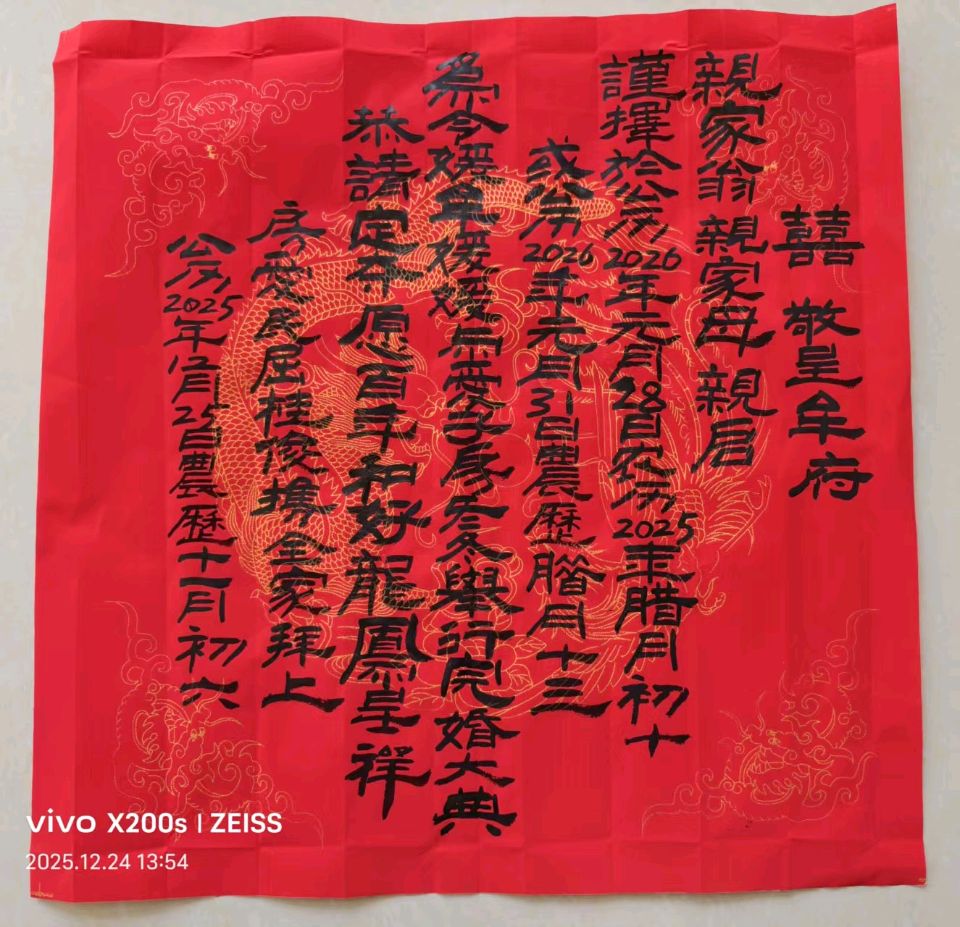 囍 敬呈牟府
親家翁親家母親启
謹擇於公历2026年元月28日农历2025年腊月初十
或公历2026年元月31日農歷腊月十三
為令嬡牟媛媛与愛子房冬冬舉行完婚大典
恭請定夺原百年和好龍鳳呈祥
房愛民屈桂俊携全家拜上
公历2025年12月25日農歷十一月初六
vivo X200s | ZEISS
2025.12.24 13:54